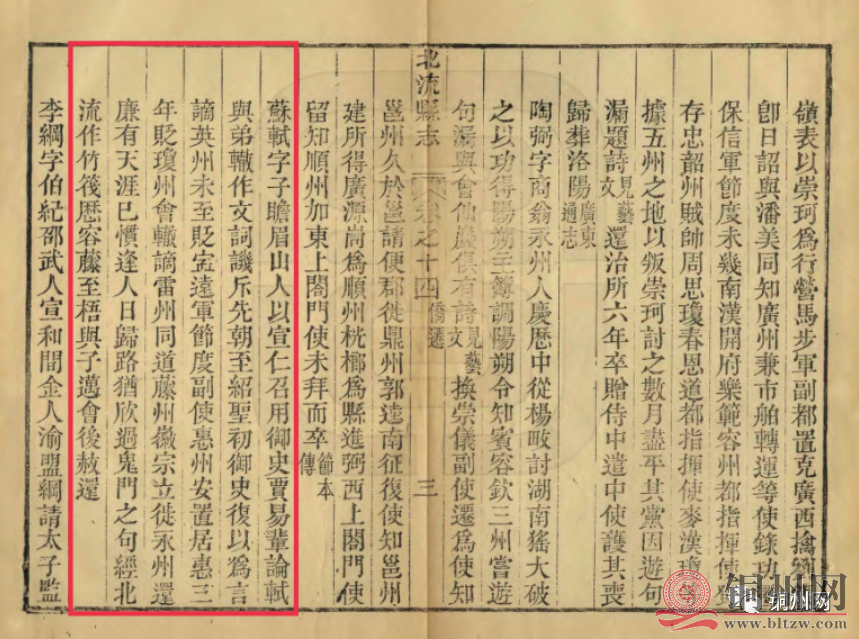 嶺表以崇珂爲行營馬步軍副都置克廣西擒劉
卽日詔與潘美同知廣州兼市舶轉運等使錄功
保信軍節度未幾南漢開府樂範容州都指揮使
存忠韶州賊帥周思瓊春恩道都指揮使麥漢瓊
據五州之地以叛崇珂討之數月盡平其黨因遊句
漏題詩見藝文還治所六年卒贈侍中遣中使護其喪
歸葬洛陽廣東通志
陶弼字商翁永州人慶歷中從楊畋討湖南猺大破
之以功得陽朔主簿調陽朔令知賓容欽三州嘗遊
北流縣志 卷之十四 僑遷 三
句漏與會仙巖俱有詩見藝文換崇儀副使遷爲使知
邕州久於邕請便郡徙鼎州郭逵南征復使知邕州
建所得廣源峝爲順州桄榔爲縣進弼西上閤門使
留知順州加東上閤門使未拜而卒節本傳
蘇軾字子瞻眉山人以宣仁召用御史賈易輩論軾
與弟轍作文詞譏斥先朝至紹聖初御史復以爲言
謫英州未至貶寍遠軍節度副使惠州安置居惠三
年貶瓊州會轍謫雷州同道藤州徽宗立徙永州還
廉有天涯已慣逢人日歸路猶欣過鬼門之句經北
流作竹筏歷容藤至梧與子邁會後赦還
李綱字伯紀邵武人宣和間金人渝盟綱請太子監
铜州网
www.bltzw.com
铜州网